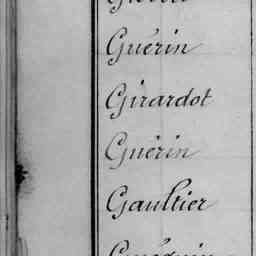 Guérin
Girardot
Guérin
Gaultier